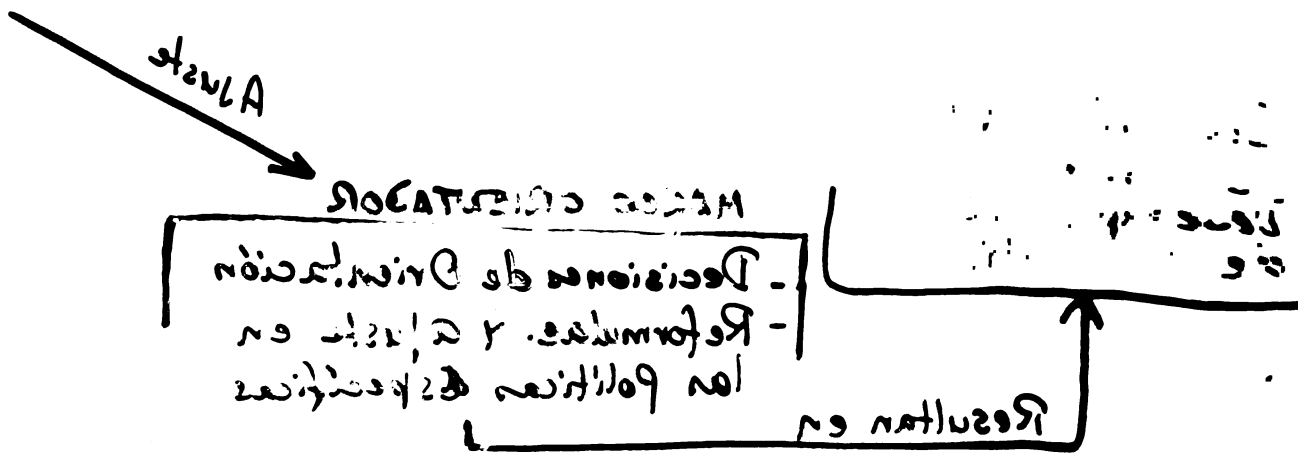 Ajuste
MARCO ORIENTADOR
- Decisiones de Orientación
- Reformulac. Y ajuste en
las Políticas Específicas
Resultan en